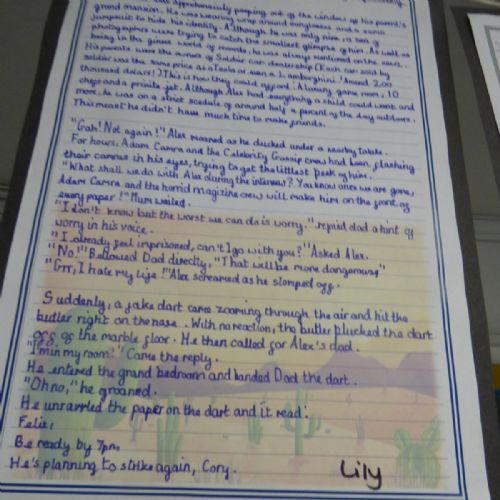 was apprehensively peeping out of the window of his parent's
grand mansion. He was wearing wrap around sunglasses and a
jumpsuit to hide his identity. Although he was only nine
photographers were trying to catch the smallest glimpse of him. As well as
being in the guiness world of records, he was always mentioned on the
His parents were the owners of Soldiar car dealership (Each car sold by
soldiar was the same price as a Tesla or even a Lamborghini! Around 200
thousand dollars!) This is how they could afford: A luxury game room, 10
chefs and a private jet. Although Alex had everything a child could want and
more, he was on a strict scedule of around half a percent of the day outdoors.
This meant he didn't have much time to make friends.
"Gah! Not again!" Alex moaned as he ducked under a nearby table.
For hours, Adam Camra and the Celebrity Gossip crew had been flashing
their cameras in his eyes, trying to get the littlest peek of him.
"What shall we do with Alex during the interview? You know once we are gone,
Adam Camra and the horrid magizine crew will make him on the front of
every paper!" Mum wailed.
"I don't know but the worst we can do is worry." repied dad a hint of
worry in his voice.
"I already feel imprisoned, can't I go with you?" Asked Alex.
"No!" Bellowed Dad directly, "That will be more dangerous,"
"Grr, I hate my life!" Alex screamed as he stomped off.
Suddenly, a fake dart came zooming through the air and hit the
butler right on the nose. With no reaction, the butler plucked the dart
off of the marble floor. He then called for Alex's dad.
"I'm in my room!" Came the reply.
He entered the grand bedroom and handed Dad the dart.
"Oh no," he groaned.
He unravled the paper on the dart and it read:
Felix,
Be ready by 7pm,
He's planning to strike again, Cory.
Lily